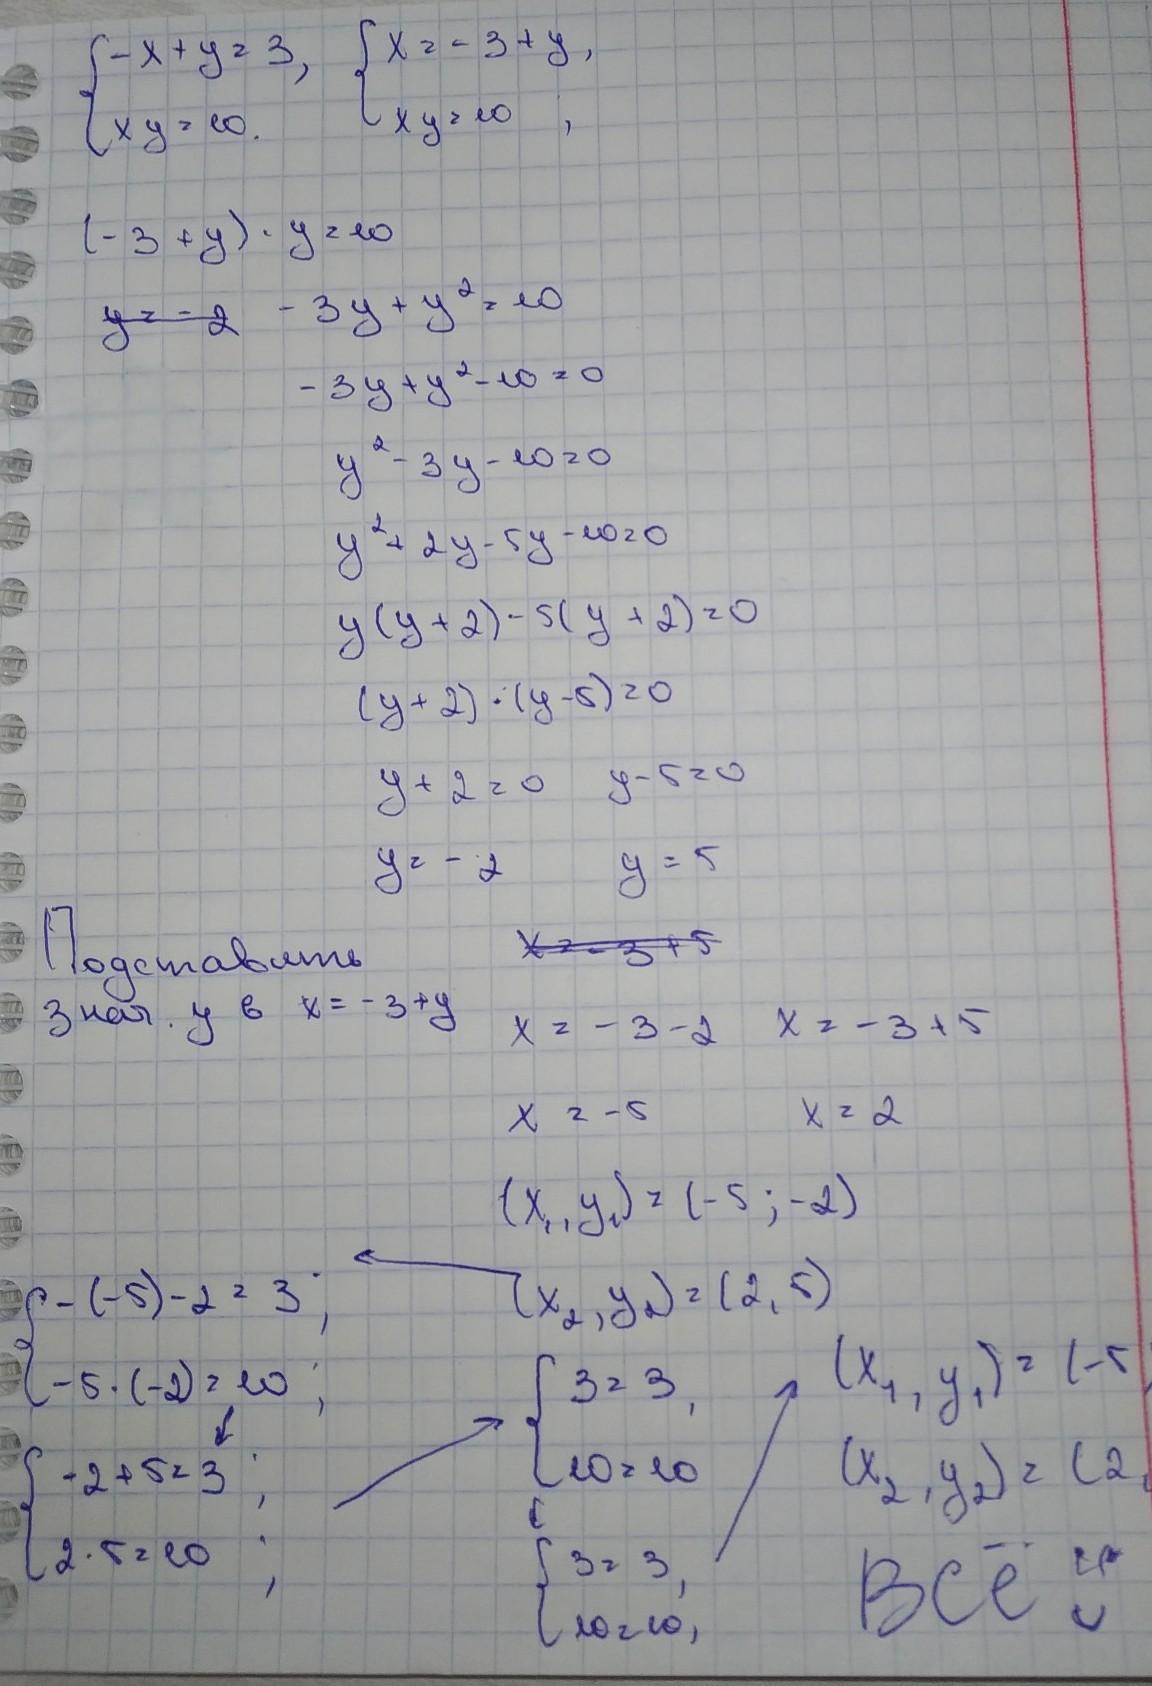 {-x+y=3, {x=-3+y,
{xy=10. {xy=10 ;
(-3+y)·y=10
y=-2 -3y+y²=10
-3y+y²-10=0
y²-3y-10=0
y²+2y-5y-10=0
y(y+2)-5(y+2)=0
(y+2)·(y-5)=0
y+2=0 y-5=0
y=-2 y=5
x=-3+5
Подставить
знач. y в x=-3+y
x=-3-2 x=-3+5
x=-5 x=2
(x₁,y₁)=(-5;-2)
(x₂,y₂)=(2,5)
{-(-5)-2=3;
{-5·(-2)=10;
{-2+5=3;
{2·5=10;
{3=3,
{10=10
{3=3,
{10=10,
(x₁,y₁)=(-5
(x₂,y₂)=(2,
ВСЁ